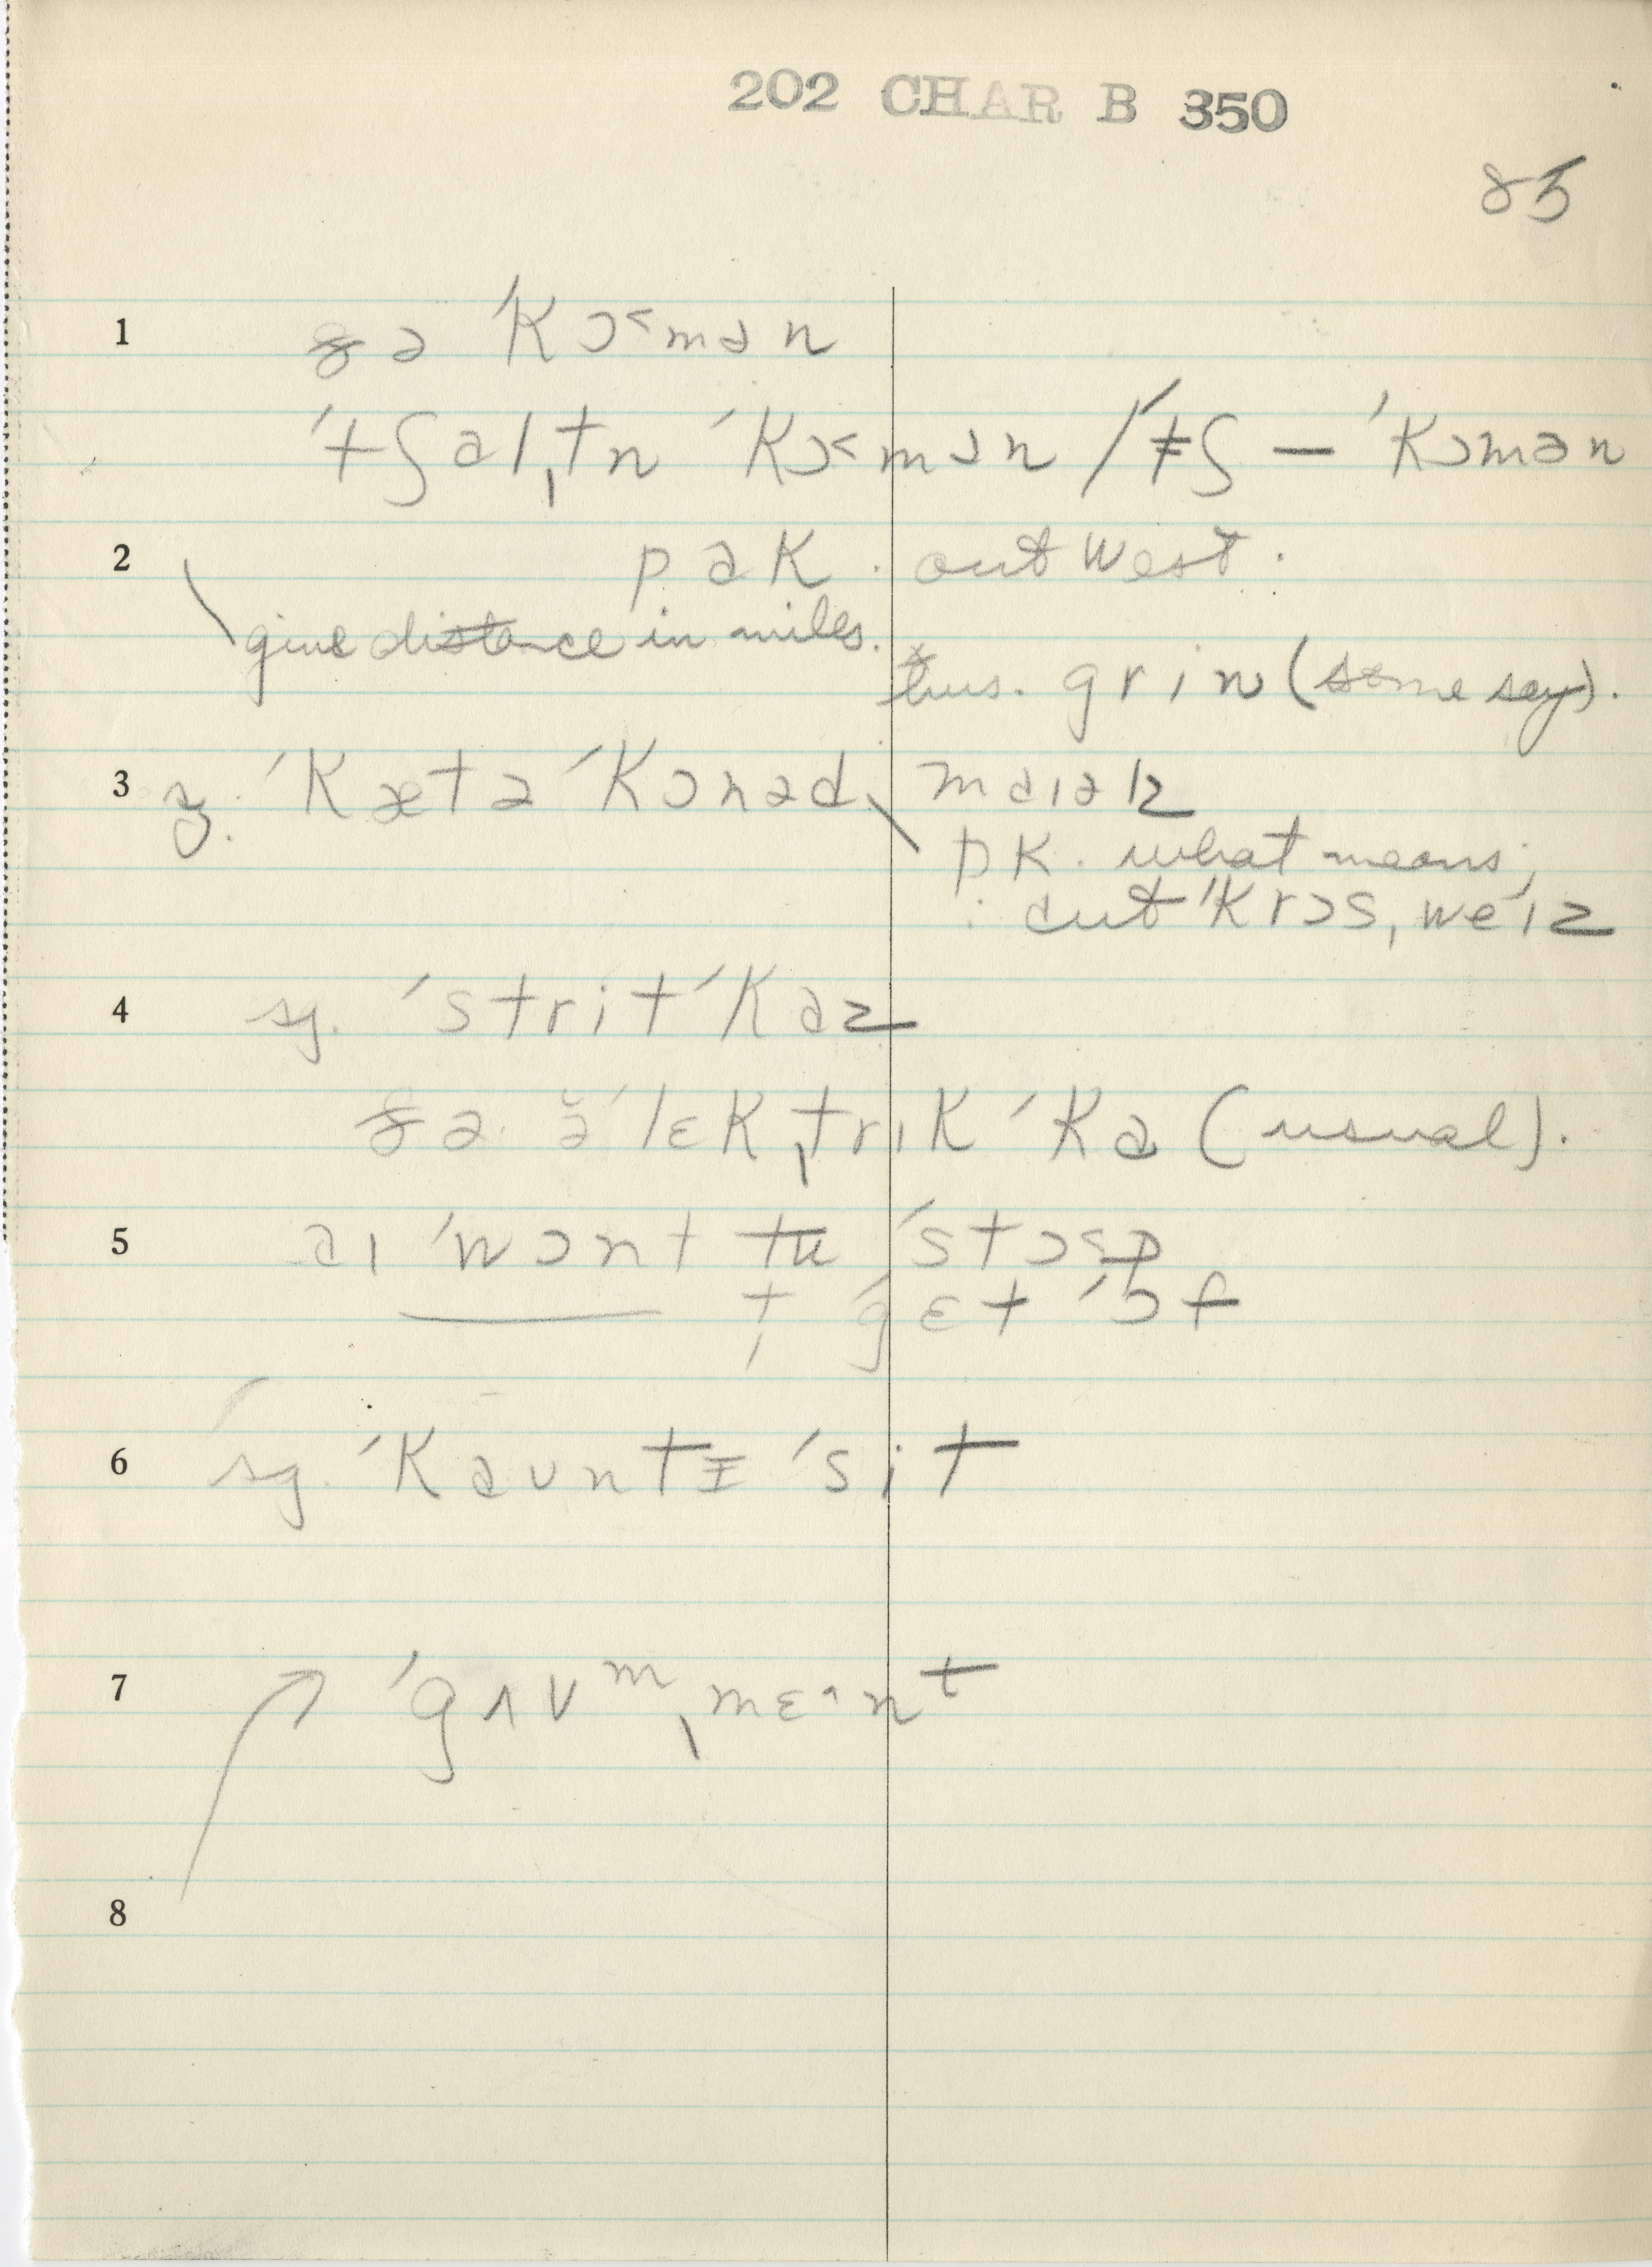 202 CHAR B 350
85
1 ðə ˈkɔ˂mən
ˈtʃɑlˌtn ˈkɔ˂mən / ˈtʃ — ˈkɔmən
2 pɑk . out West .
give distance in miles.
thus. grin (some say).
3 ˈkætə ˈkɔnəd
maɪəlz
pk. what means;
: cut ˈkrɔs, weˈɪz
4 sg. ˈstrit ˈkɑz
ðə ə̆ˈlɛkˌtrɪk ˈka (usual).
5 aɪ ˈwɔnt tu ˈstɔ˂p
——— t gɛt ˈɔf
6 sg. ˈkaʊntɪ ˈsit
7 ˈgʌvᵐˌmɛᵊnᵗ
8